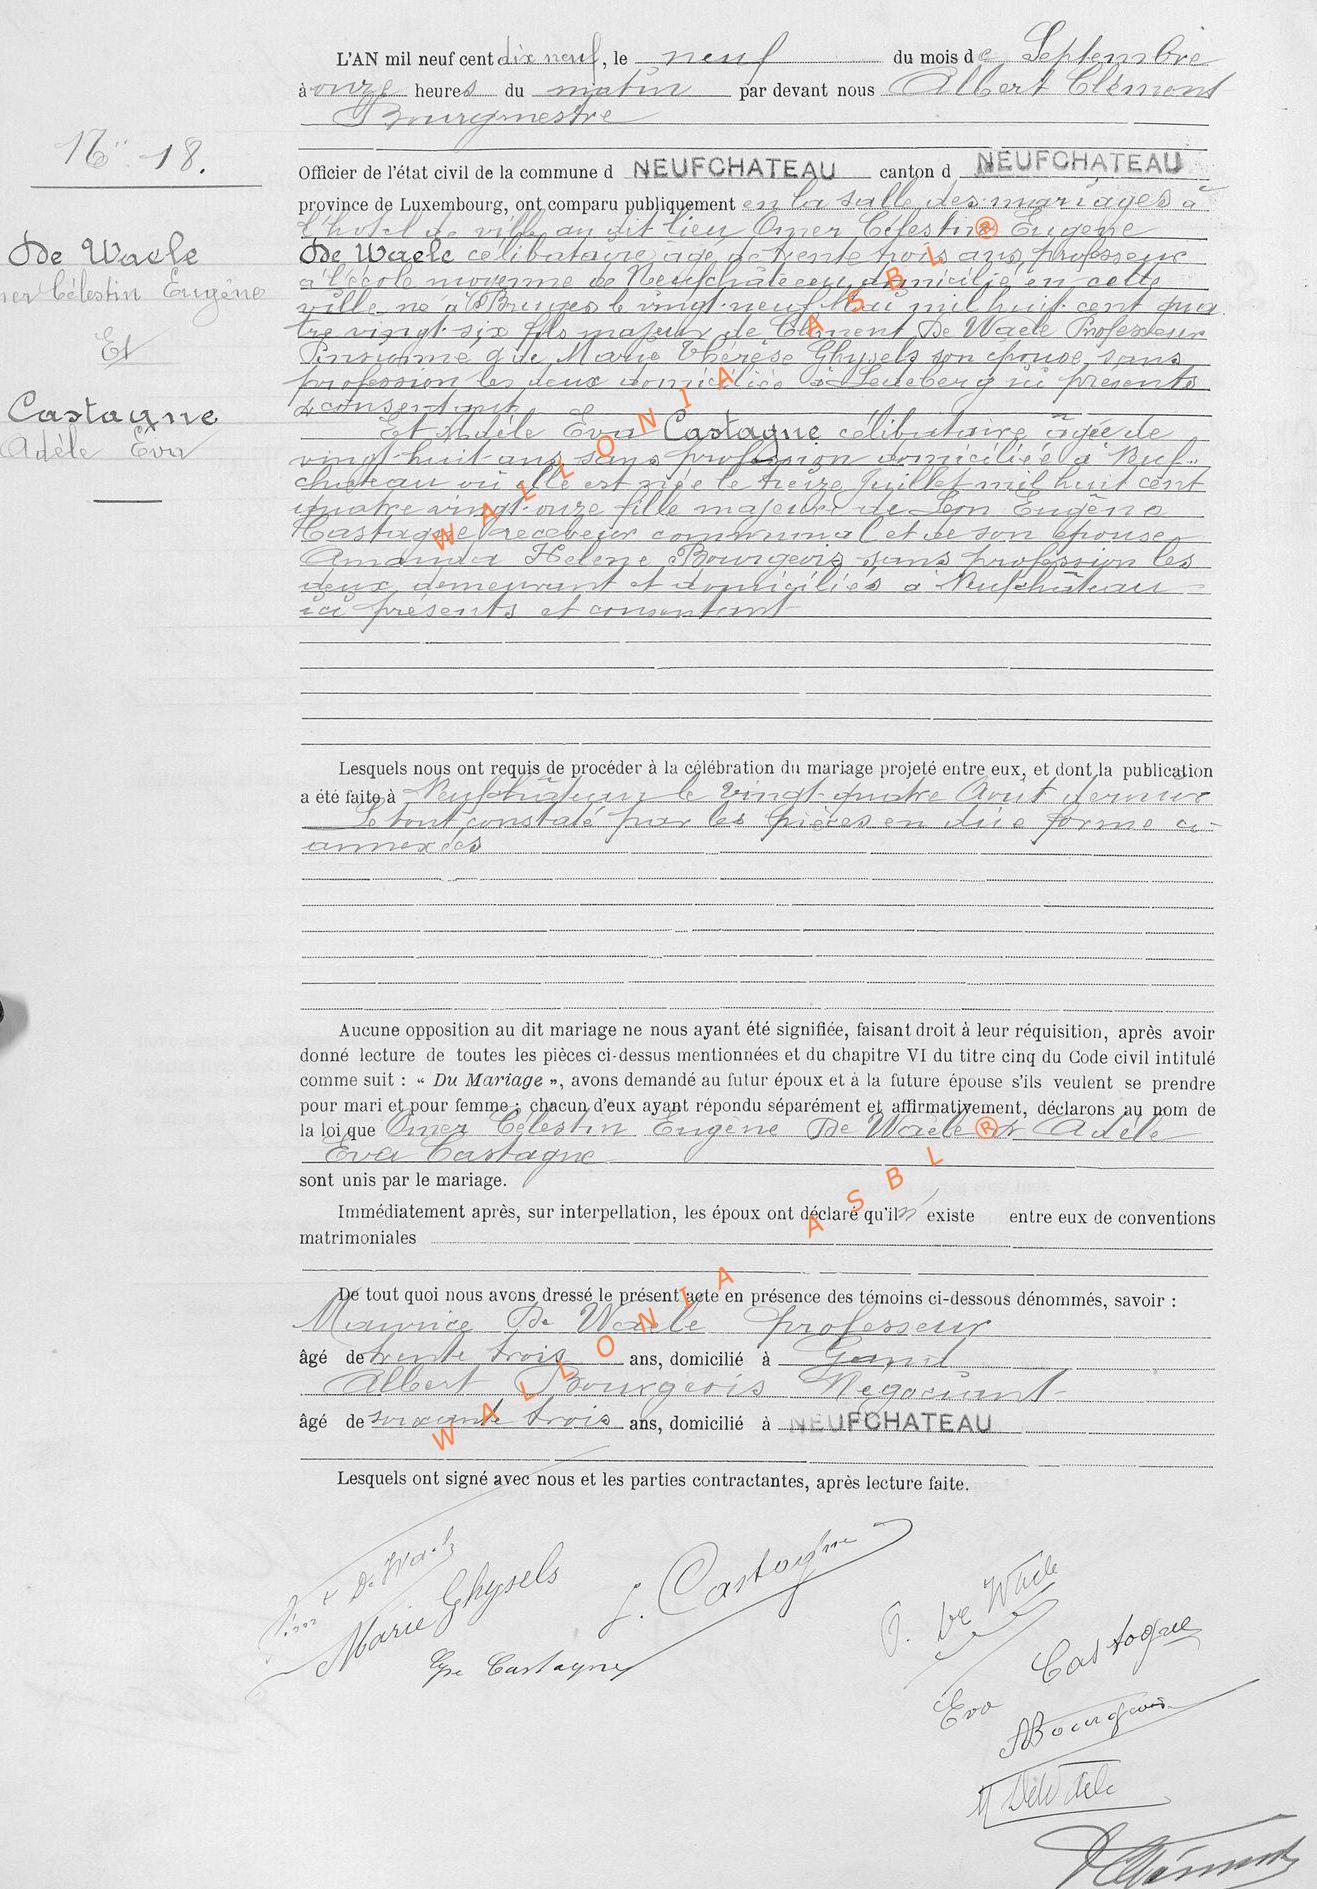 L'AN mil neuf cent dix neuf, le neuf du mois de Septembre
à onze heures du matin par devant nous Albert Clément
Bourgmestre
No 18.
Officier de l'état civil de la commune d NEUFCHATEAU canton d NEUFCHATEAU
province de Luxembourg, ont comparu publiquement en la salle des mariages à
l'hotel de ville au dit lieu Omer Célestin Eugène
De Waele célibataire âgé de trente trois ans, professeur
à l'école moyenne de Neufchâteau, domicilié en cette
ville né à Bruges le vingt-neuf Mai mil huit cent qua
tre vingt-six fils majeur de Clément De Waele Professeur
Pensionné que Marie Thérèse Ghysels son épouse, sans
profession les deux domiciliés à Ledeberg ici présents
& consentant
De Waele
Célestin Eugène
Et
Castagne
Adèle Eva
Et Adèle Eva Castagne célibataire âgée de
vingt-huit ans, sans profession domiciliée à Neuf-
château où elle est née le treize Juillet mil huit cent
quatre vingt-onze fille majeure de Léon Eugène
Castagne receveur communal et de son épouse
Amanda Helene Bourgeois sans profession les
deux demeurant et domiciliés à Neufchâteau
ici présents et consentant
Lesquels nous ont requis de procéder à la célébration du mariage projeté entre eux, et dont la publication
a été faite à Neufchâteau le vingt-quatre Aout dernier
Le tout constaté par les pièces en due forme ci-
annexées
Aucune opposition au dit mariage ne nous ayant été signifiée, faisant droit à leur réquisition, après avoir
donné lecture de toutes les pièces ci-dessus mentionnées et du chapitre VI du titre cinq du Code civil intitulé
comme suit : « Du Mariage », avons demandé au futur époux et à la future épouse s'ils veulent se prendre
pour mari et pour femme ; chacun d'eux ayant répondu séparément et affirmativement, déclarons au nom de
la loi que Omer Célestin Eugène De Waele et Adèle
Eva Castagne
sont unis par le mariage.
Immédiatement après, sur interpellation, les époux ont déclaré qu'il n'existe entre eux de conventions
matrimoniales
De tout quoi nous avons dressé le présent acte en présence des témoins ci-dessous dénommés, savoir :
Maurice De Waele professeur
âgé de trente trois ans, domicilié à Gand
Albert Bourgeois Négociant
âgé de soixante trois ans, domicilié à NEUFCHATEAU
Lesquels ont signé avec nous et les parties contractantes, après lecture faite.
De Waele
Marie Ghysels
L. Castagne
Castagne
O. De Waele
Eva Castagne
ABourgeois
M DeWaele
Clément
WALLONIA ASBL ®
WALLONIA ASBL ®